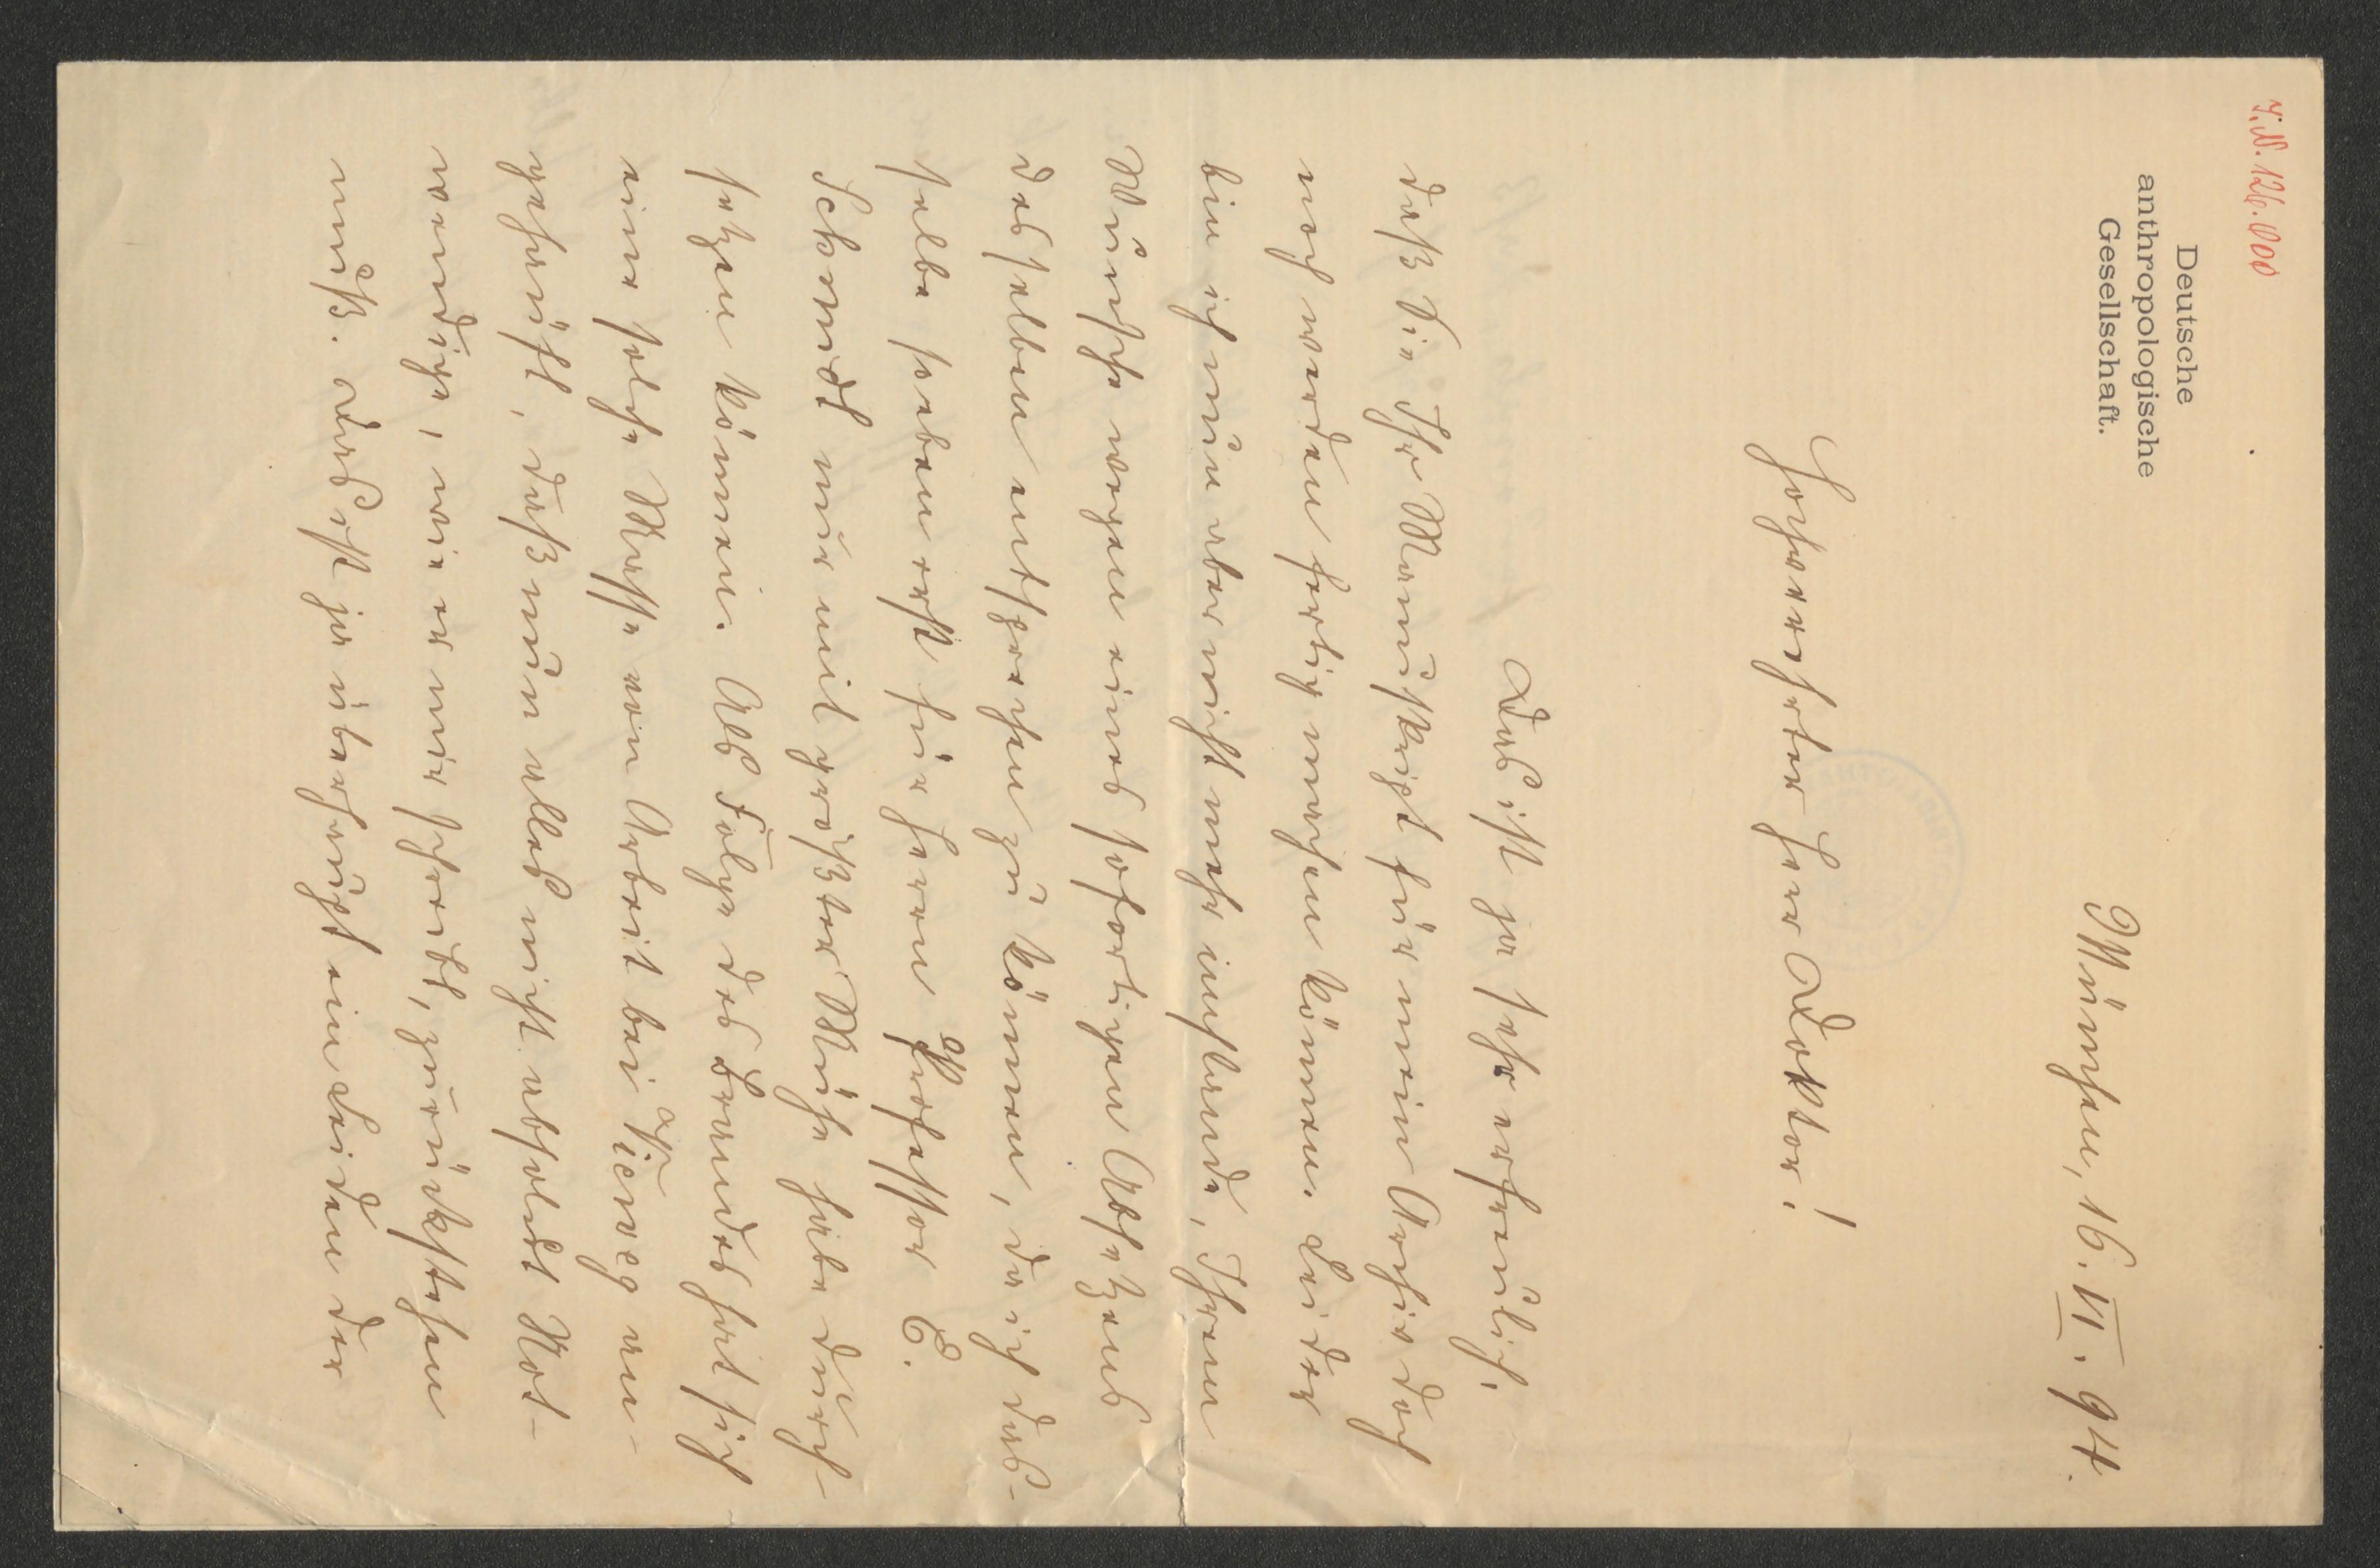 I.N. 126.000
Deutsche
anthropologische
Gesellschaft.
München, 16. VI. 94.
Hochverehrter Herr Doktor!
Das ist ja sehr erfreulich,
daß Sie Ihr Manuskript für mein Archiv doch
noch werden fertig machen können. Leider
bin ich nun aber nicht mehr imstande, Ihrem
Wunsche wegen eines sofortigen Absetzens
desselben entsprechen zu können, da ich das-
selbe soeben erst für Herrn Professor E.
Schmidt nur mit größter Mühe habe durch-
setzen können. Als Folge des Brandes hat sich
eine solche Masse von Arbeit bei Vieweg an-
gehäuft, daß nun alles nicht absolut Not-
wendige, wie er mir schreibt, zurückstehen
muß. Das ist ja überhaupt ein Leiden der